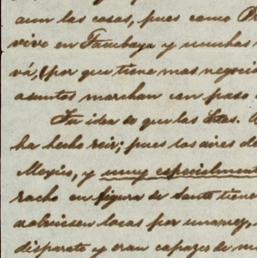 aun las cosas, pues como
vive en Tacubaya y muchas
vá, (por que tiene mas negocio
asuntos marchan con paso
Tu idea de que las Stas.
ha hecho reir; pues los aires de
Mexico, y muy especialment
racho en figura de Santo tiene
volviesen locas por
disparate y eran capaces de